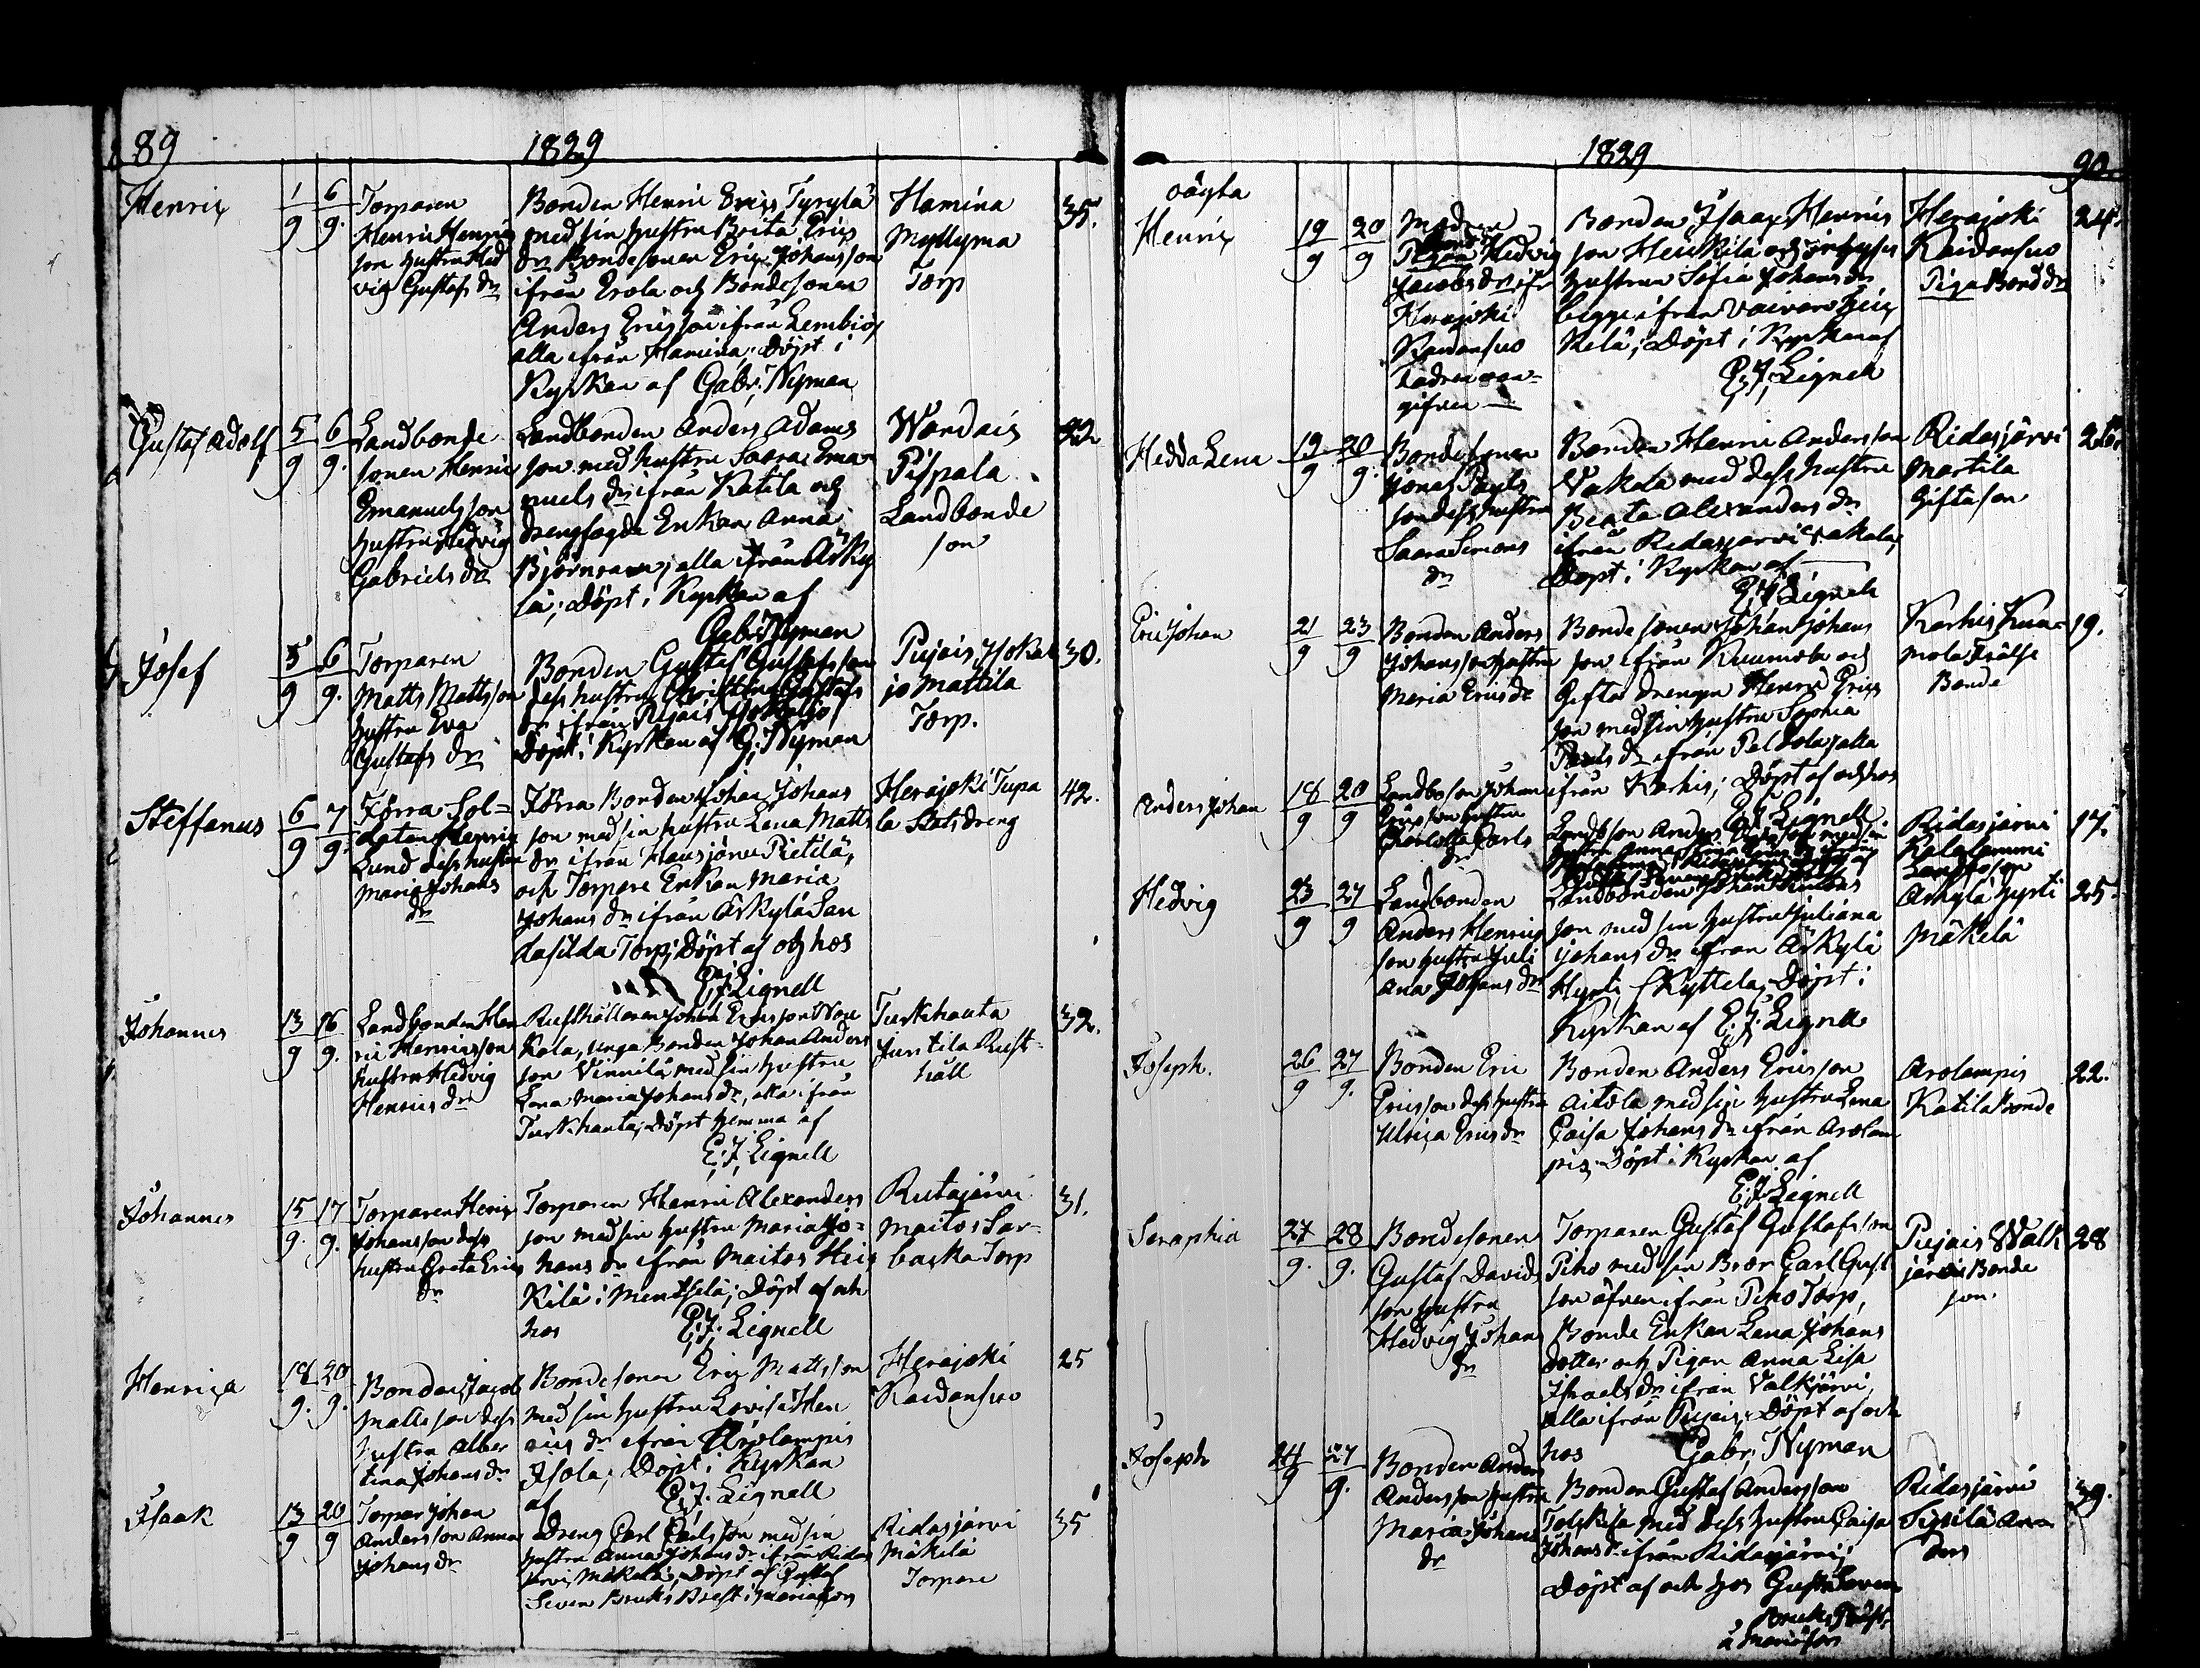 89
1829
Henrix
1/9
6/9.
Torparen
Henric Henrics
son hustru Hed
vig Gustafs dr
Bonden Henric Erics Tyrylä
med sin hustru Brita Erics
dr Bondesonen Eric Johansson
ifrån Erola och Bondesonen
Anders Ericsson ifrån Lembiö;
alla ifrån Hamina; Döpt i
Kyrkan af Gabr: Nyman
Hamina
Myllyma
Torp
35.
Gustaf Adolf
5/9
6/9.
Landbonde
sonen Henric
Emanuelsson
hustru Hedvig
Gabriels dr
Landbonden Anders Adams
son med hustru Saara Ema
nuels dr ifrån Katila och
drengfogde Enkan Anna
alla ifrån Arky
lä; Döpt i Kyrkan af
Gabr: Nyman
Wardais
Pispala
Landbonde
son
Josef
5/9
6/9.
Torparen
Matts Mattsson
hustru Eva
Gustafs dr
Bonden Gustaf Gustafsson
dess hustru Christina Gustafs
dr ifrån Pujais
Döpt i Kyrkan af G: Nyman
Pujais Isokal
jo Mattila
Torp.
30.
Steffanus
6/9
7/9.
Förra Sol=
daten Henric
Lund dess hustru
Maria Johans
dr
Förra Bonden Johan Johans
son med sin hustru Lena Matts
dr ifrån Hausjärvi Pietilä,
och Torpare Enkan Maria
Johans dr ifrån Arkylä San
Torp; Döpt af och hos
E: J: Lignell
Herajoki Tupa
la Stats dreng
42.
Johannes
13/9
16/9.
Landbonden Hen
ric Henricsson
hustru Hedvig
Henrics dr
Rusthållaren Johan Ericsson
Kala, unga Bonden Johan Anders
son Vinnilä med sin hustru
Lena Maria Johans dr, alla ifrån
Turkhauta; Döpt hemma af
E: J: Lignell
Turkhauta
Juntila Rust-
håll
32.
Johannes
15/9.
17/9.
Torparen Henric
Johansson dess
hustru Greta Erics
dr
Torparen Henric Alexanders
son med sin hustru Maria Jo=
hans dr ifrån Maitos Hei
Kilä i Mentselä; Döpt af och
hos
E: J: Lignell
Rutajärvi
Maitos Sar-
baska Torp
31.
Henrica
18/9.
20/9.
Bonden Jacob
Mattsson dess
hustru Alber
tina Johans dr
Bondesonen Eric Mattsson
med sin hustru Lovisa Hen
rics dr ifrån Arolampis
Isola; Döpt i Kyrkan
af
E: J: Lignell
Herajoki
Raidansuo
25
Isaak
13/9
20/9
Torpar Johan
Andersson Anna
Johans dr
Dreng Carl Carlsson med sin
hustru Anna Johans dr ifrån Ridas
järvi Mäkelä; Döpt af Gustaf
Seven Bruks Prest i Mariefors
Ridasjärvi
Mäkelä
Torpare
35
1829
90.
oägta
Henrix
19/9
20/9
Modren
Pigan Hedvig
Jacobs dr ifr
Herajoki
Raidansuo
Fadren oan-
gifven
Bonden Isaac Henrics
son Heikkilä och
hustrun Sofia Johans dr
begge ifrån Vaivars Hei
kilä; Döpt i Kyrkan af
E: J: Lignell
Herajoki
Raidansuo
Piga Bond dr
24.
Hedda Lena
19/9
20/9.
Bondesonen
Jonas Pauls
son dess hustru
Saara Simons
dr
Bonden Henric Andersson
Vakala med dess hustru
Beata Alexanders dr
ifrån Ridasjärvi Vakala;
Döpt i Kyrkan af
E: J: Lignell
Ridasjärvi
Martila
Gifta son
Eric Johan
21/9
23/9
Bonden Anders
Johansson hustru
Maria Erics dr
Bonde sonen Johan Johans
son ifrån Kuumola och
Gifta drengen Henric Erics
son med sin hustru Sophia
Pauls dr ifrån Peldola, alla
ifrån Karhis; Döpt af och hos
E: J: Lignell
Karhis Kuu=
mola Frälse
Bonde
19.
Anders Johan
18/9
20/9
Landbo son Johan
Ericsson hustru
Charlotta Carls
dr
Ridasjärvi
Kalalammi
17.
Hedvig
23/9
27/9
Landbonden
Anders Henrics
son hustru Juli
ana Johans dr
Landbonden Johan
son med sin hustru Juliana
Johans dr ifrån Arkylä
Hyrti Kyttelä; Döpt i
Kyrkan af E: J: Lignell
Arkylä Hyrti
Mäkelä
25.
Joseph.
26/9
27/9.
Bonden Eric
Ericsson dess hustru
Ulrica Erics dr
Bonden Anders Ericsson
Aitola med sin hustru Lena
Caisa Johans dr ifrån Arolam
pis; Döpt i Kyrkan af
E: J: Lignell
Arolampis
Katila Bonde
22.
Seraphia
27/9.
28/9.
Bondesonen
Gustaf Davids
son hustru
Hedvig Johans
dr
Torparen Gustaf Gustafsson
Piho med sin Bror Carl Gust
son äfven ifrån Piho Torp,
Bonde Enkan Lena Johans
dotter och Pigan Anna Lisa
Israels dr ifrån Valkjärvi,
alla ifrån Pujais; Döpt af och
hos
Gabr: Nyman
Pujais Walk
järvis Bonde
son.
28
Joseph
24/9
27/9.
Bonden Anders
Andersson hustru
Maria Johans
dr
Bonden Gustaf Andersson
Tolskila med dess hustru Caisa
Johans dr ifrån Ridasjärvi;
Döpt af och hos Gust: Seven
Bruks Präst
å Mariefors
Ridasjärvi
Sipilä An
ders
39.